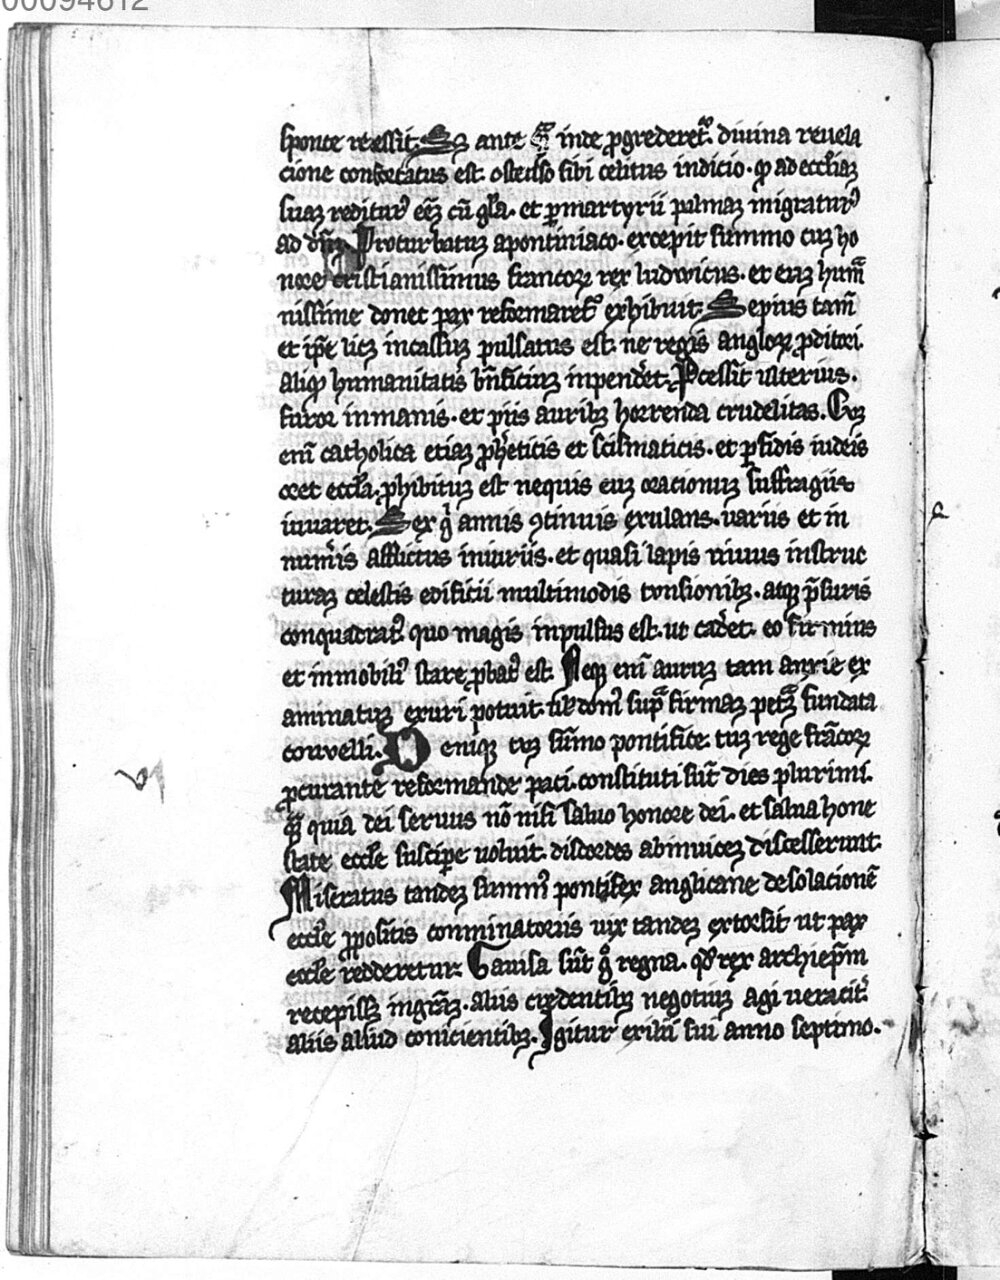 00094612
sponte recessit. Sz ante q̄ȝ inde ꝓgrederet᷑. diuina reuela
cione confortatus est. ostenso sibi celitus indicio. ꝙ ad eccl̄iaȝ
suaȝ rediturꝰ eēt cū gl̄a. et ꝑ martyrii palmaȝ migraturꝰ
ad dn̄m Proturbatuȝ a pontiniaco. excepit summo cuȝ ho
nore cristianissimus francoꝝ rex ludwicus. et euȝ humā
nissime donec pax reformaret᷑ exhibuit. Sepius tam̄
et ip̄e licȝ incassuȝ pulsatus est. ne regis angloꝝ ꝓditori
aliqꝫ humanitatis bn̄ficiuȝ inpenderet. Pcessit ulterius.
furor inmanis. et piis auribȝ horrenda crudelitas. Cuȝ
eni catholica etiaȝ ꝓ hereticis et scismaticis. et ꝑfidis iudeis
oret eccl̄a. ꝓhibituȝ est nequis euȝ oracionuȝ suffragiis
iuuaret. Sex gͥ annis ꝯtinuis exulans. uariis et in
numeris afflictus iniuriis. et quasi lapis uiuus in struc
turaȝ celestis edificii multimodis tonsionibȝ. atqȝ p̄ssuris
conquadratꝰ quo magis inpulsus est. ut caderet. eo firmius
et inmobiliꝰ stare ꝓbatꝰ est. Neqȝ eni auruȝ tam anxie ex
aminatuȝ exuri potuit. ul̄ domꝰ supra firmaȝ petrā fundata
conuelli. Deniqȝ cuȝ sūmo pontifice. tuȝ rege francoꝝ
ꝓcurante reformande paci. constituti sūt dies plurimi.
Sȝ quia dei seruus nō nisi saluo honore dei. et salua hone
state eccl̄e suscipe uoluit. discordes abinuiceȝ discesserunt.
Miseratus tandeȝ summꝰ pontifex anglicane desolacionē
eccl̄e ꝓpositis conminatoriis uix tandeȝ extorsit ut pax
eccl̄e redderetur. Gauisa sūt gͦ regna. qd̄ rex archiep̄m
recepissȝ in grām. aliis credentibȝ negotiuȝ agi ueracit᷑
aliis aliud conicientibȝ. Igitur exilii sui anno septimo.